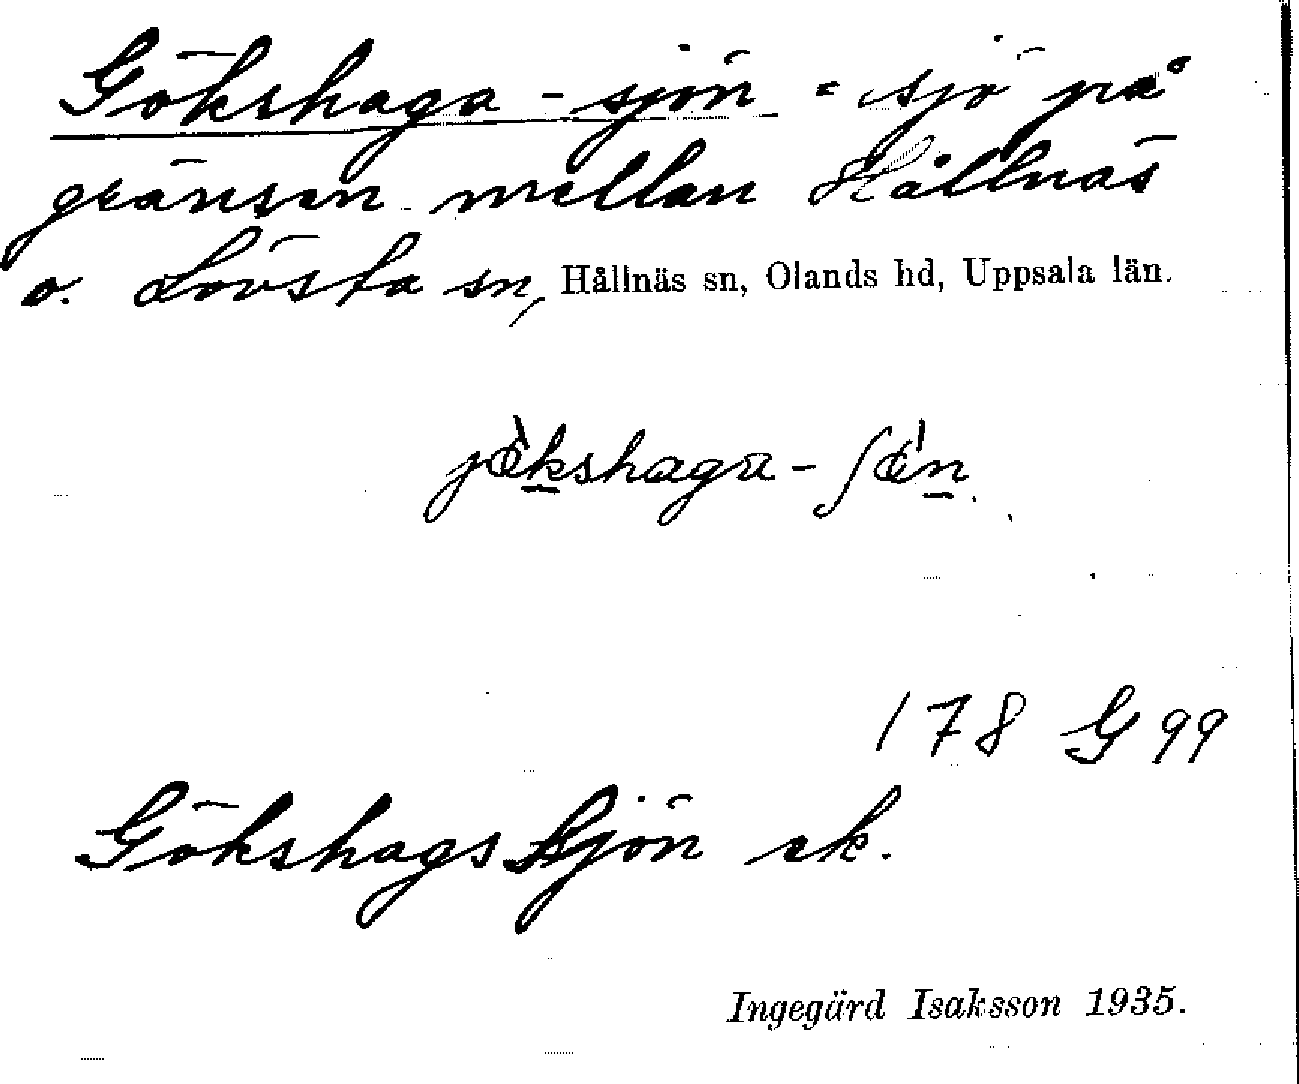 Gökshaga-sjön = sjö på
gränsen mellan Hållnäs
o. Lövsta sn, Hållnäs sn, Olands hd, Uppsala län.
jö̀kshaga-ʃö́n
178 G 99
Gökshags Sjön ek.
Ingegärd Isaksson 1935.